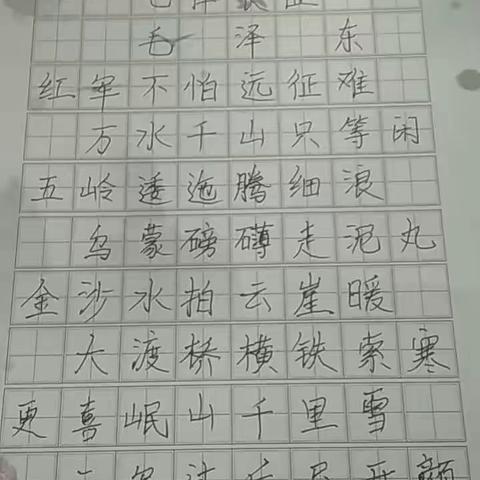 七律长征
毛泽东
红军不怕远征难
万水千山只等闲
五岭逶迤腾细浪
乌蒙磅礴走泥丸
金沙水拍云崖暖
大渡桥横铁索寒
更喜岷山千里雪
三军过后尽开颜